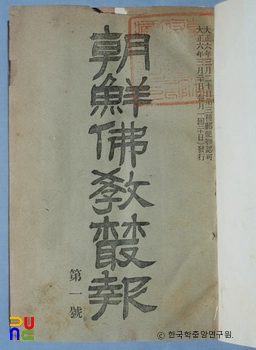 大正六年三月二十日第三種郵便物認可
大正六年三月二十日(每月一回二十日)發行
朝鮮佛敎叢報
第一號
PUNC
© 한국학중앙연구원.